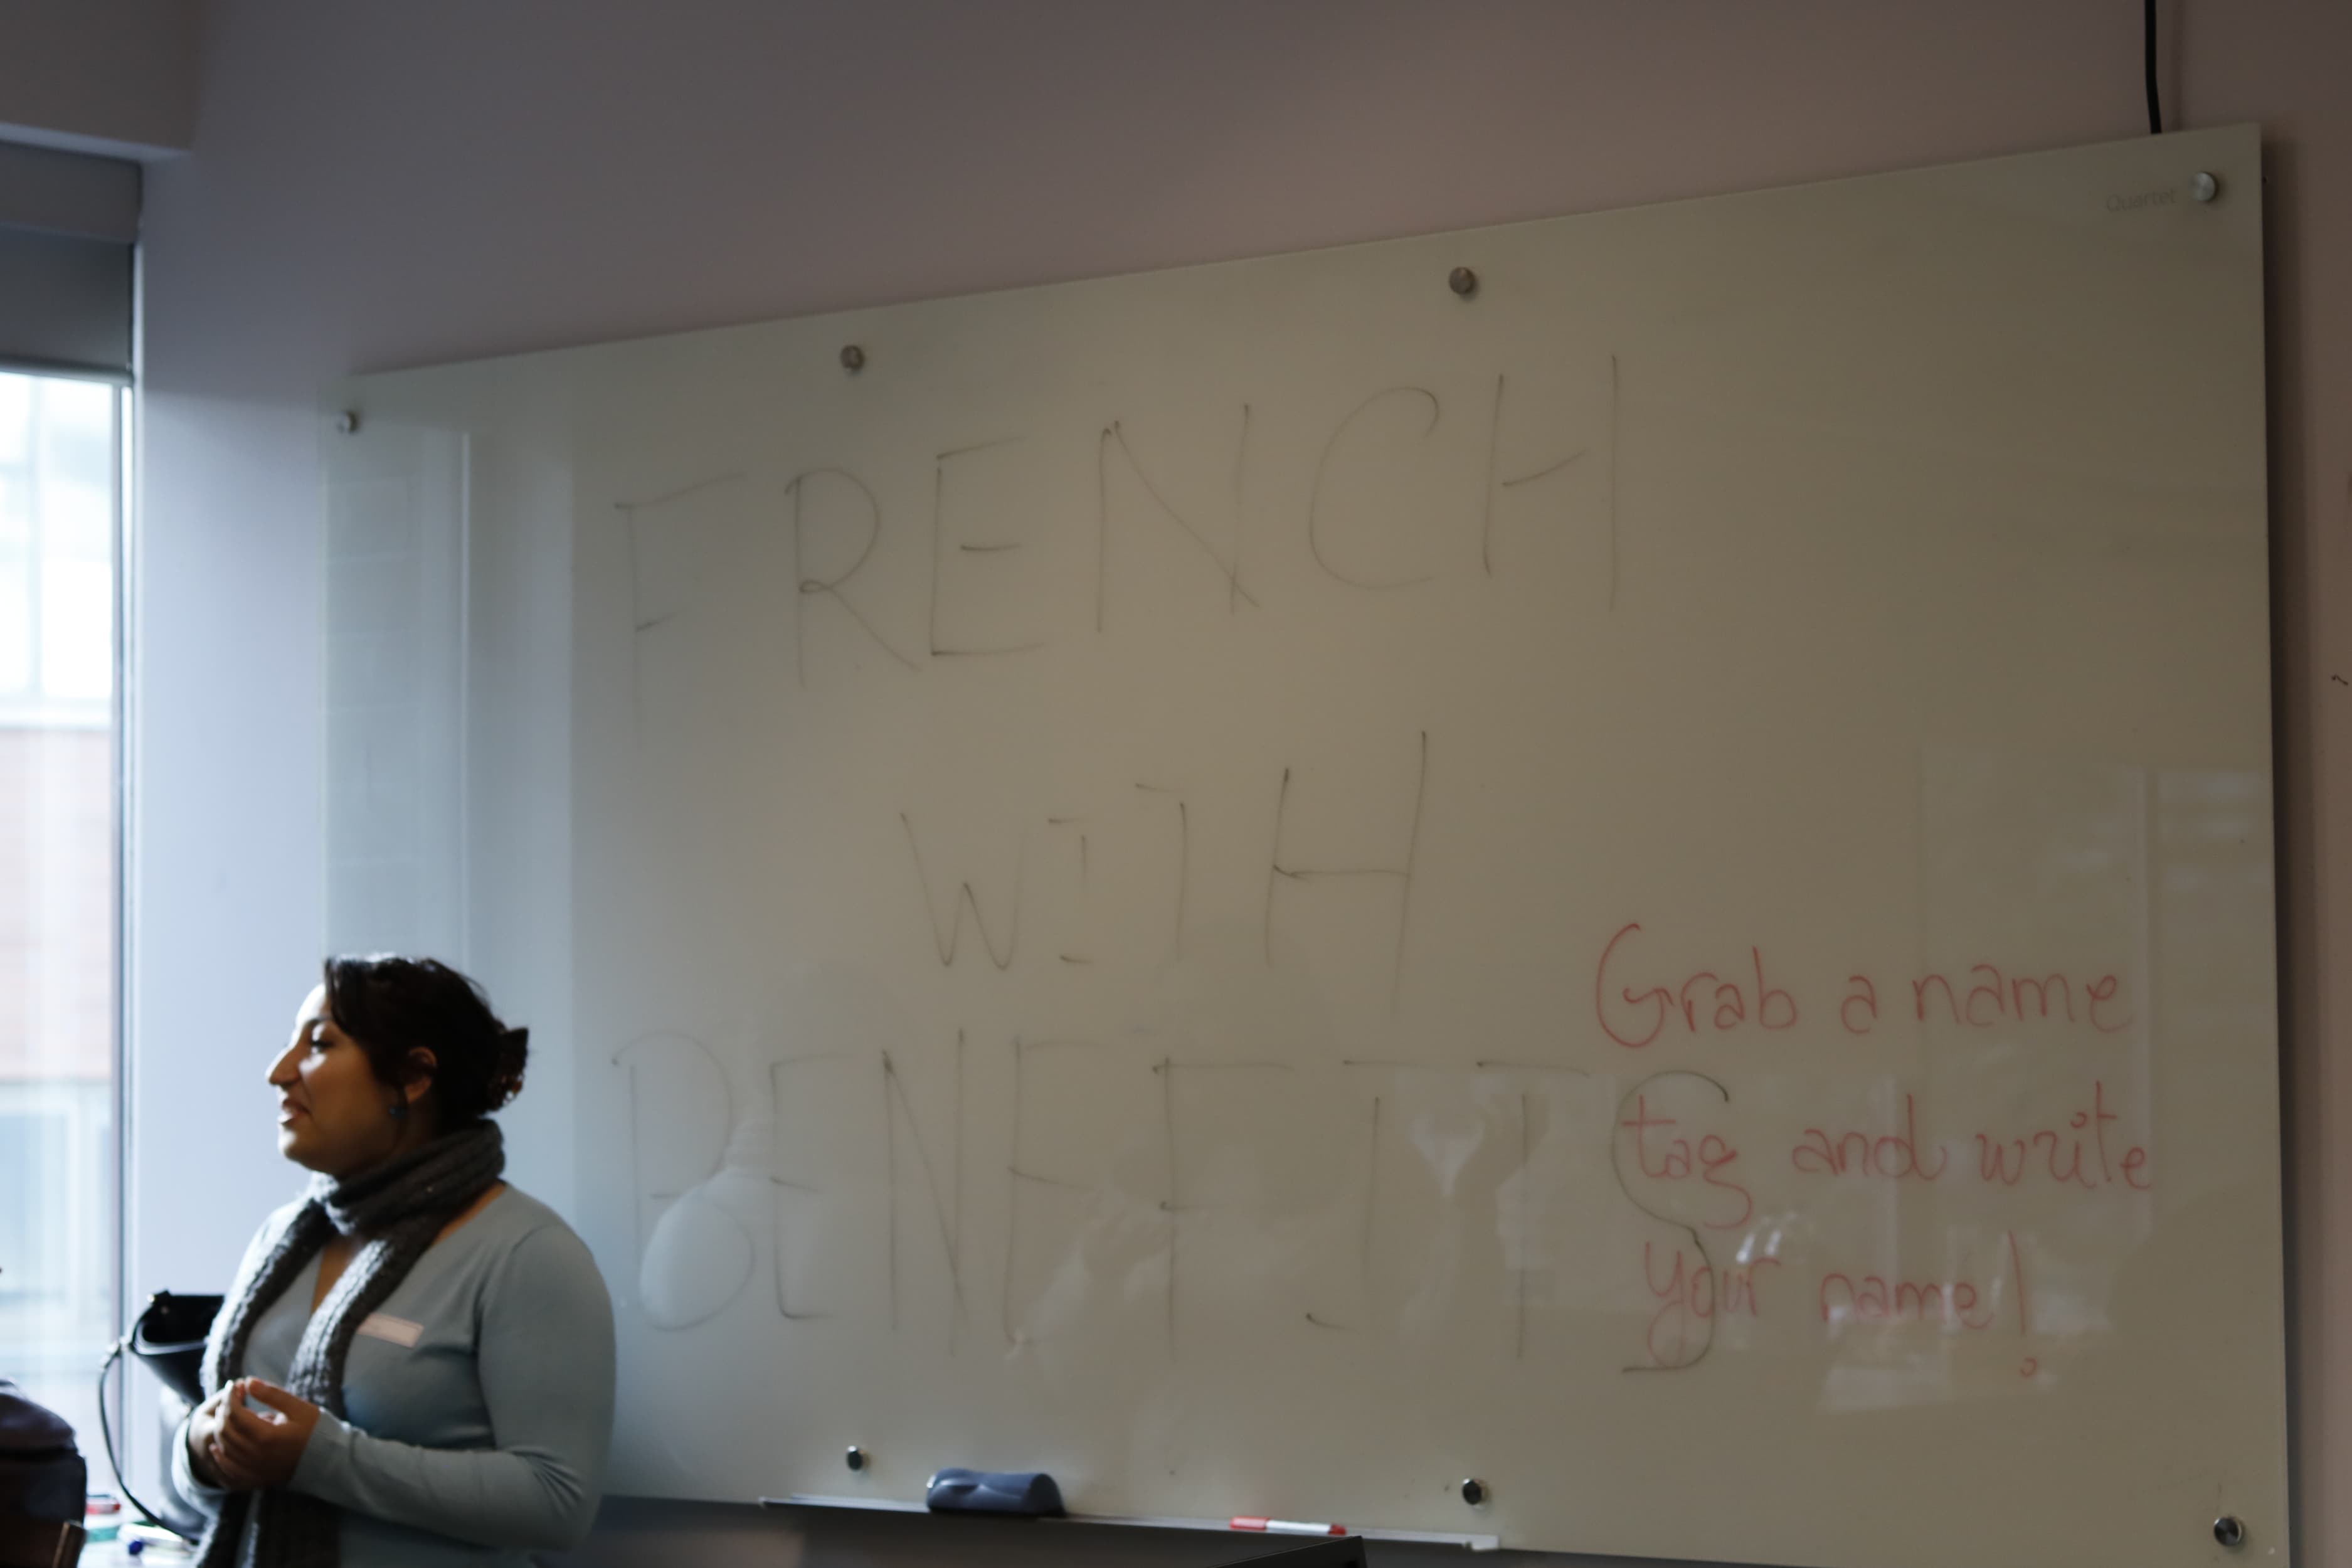 Quartet
FRENCH
WITH
BENEFITS
Grab a name
tag and write
your name!